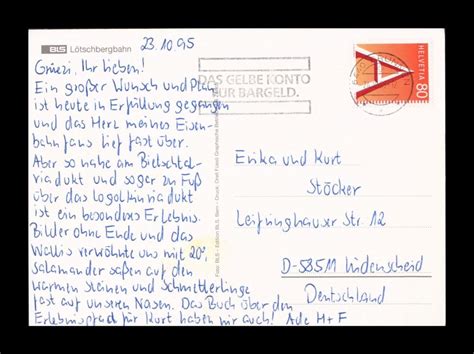 BLS Lötschbergbahn
23.10.95
Grüezi, Ihr Lieben!
Ein großer Wunsch und Plan
ist heute in Erfüllung gegangen
und das Herz meines Eisen-
bahnfans lief fast über.
Aber so nahe am Bietschtal-
viadukt und sogar zu Fuß
über das Logelkinviadukt
ist ein besonderes Erlebnis.
Bilder ohne Ende und das
Wallis verwöhnte uns mit 20°,
Salamander saßen auf den
warmen Steinen und Schmetterlinge
fast auf unseren Nasen. Das Buch über den
Erlebnispfad für Kurt haben wir auch! Ade H+F
DAS GELBE KONTO
FÜR BARGELD.
A
HELVETIA 80
Erika und Kurt
Stöcker
Leifringhauser Str. 12
Lüdenscheid
Deutschland